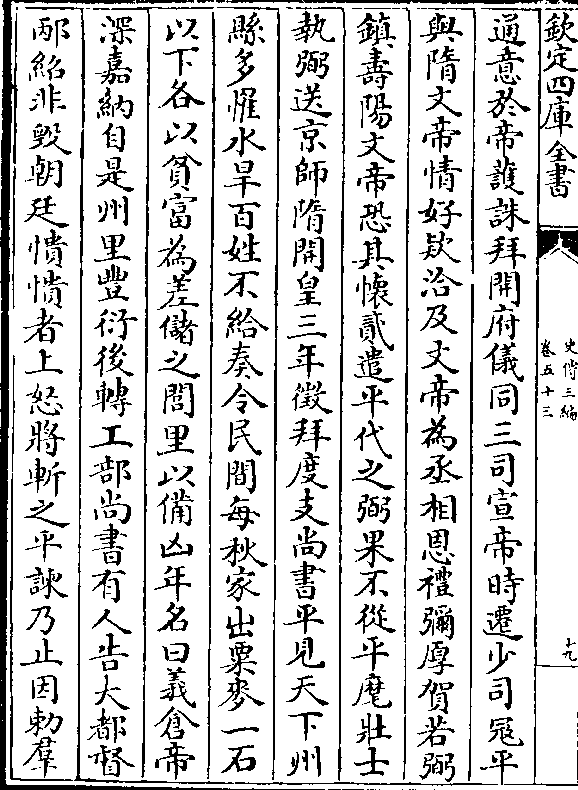 欽定四庫全書
史傳三編
卷五十三
十九
通意於帝護誅拜開府儀同三司宣帝時遷少司冦平
與隋文帝情好欵洽及文帝為丞相恩禮彌厚賀若弼
鎮壽陽文帝恐其懷貳遣平代之弼果不從平麾壯士
執弼送京師隋開皇三年徵拜度支尚書平見天下州
縣多罹水旱百姓不給奏令民間每秋家出粟麥一石
以下各以貧富為差儲之閭里以備凶年名曰義倉帝
深嘉納自是州里豐衍後轉工部尚書有人告大都督
邴紹非毀朝廷憒憒者上怒將斬之平諫乃止因勅羣